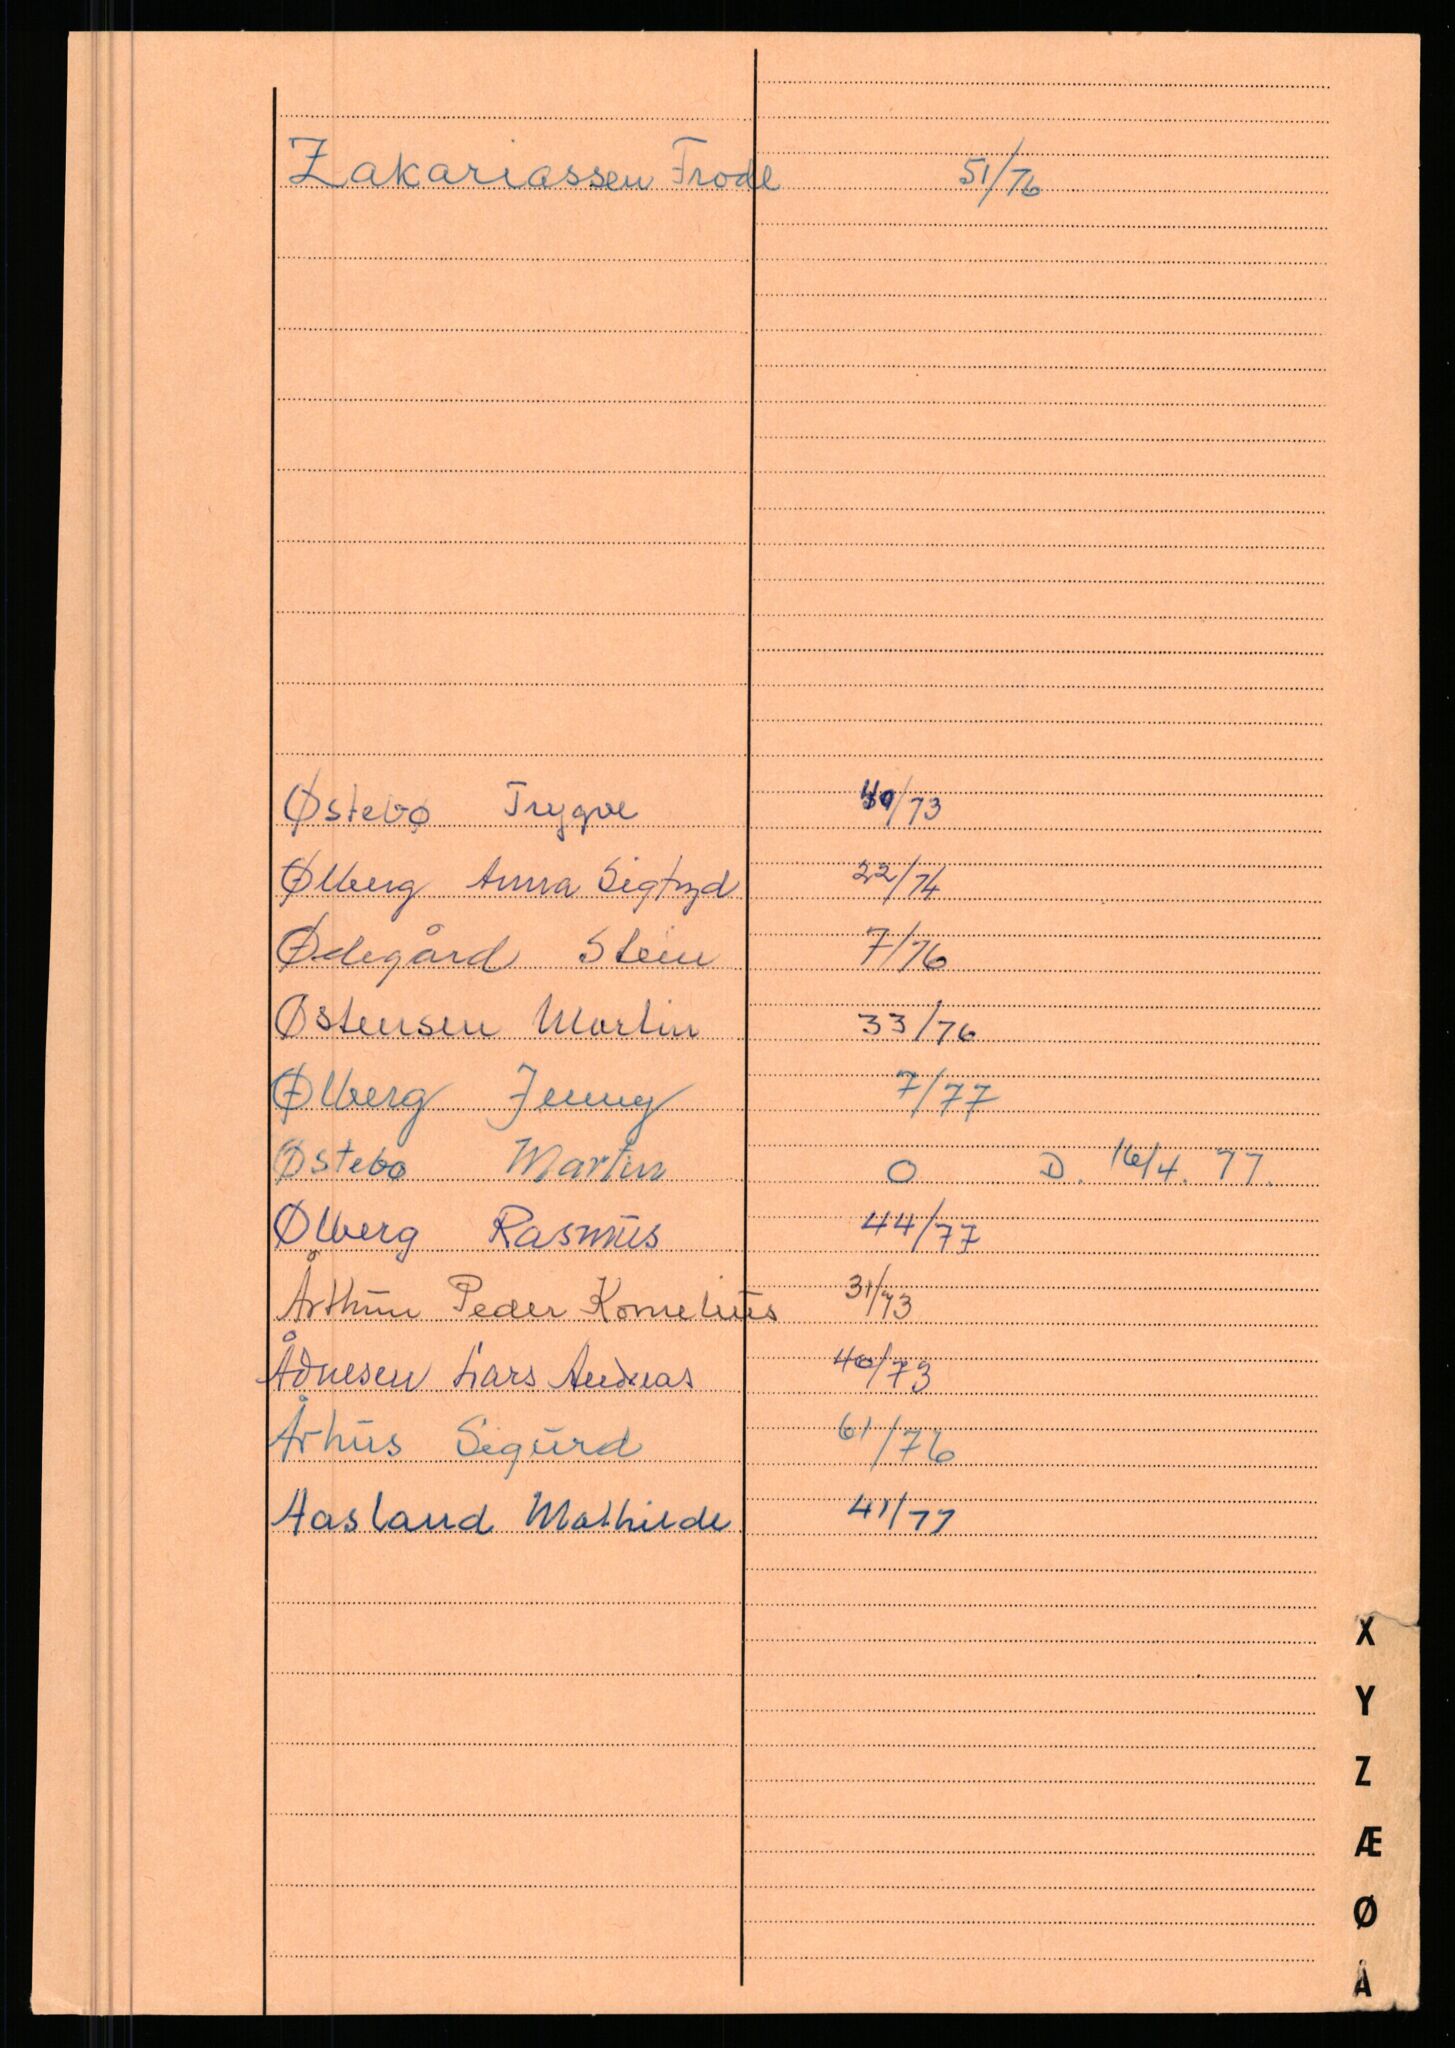 Zakariassen Frode 51/76
Østebø Trygve /73
Ølberg Anna Sigfryd 22/74
Ødegård Stein 7/76
Østensen Martin 33/76
Ølberg Jenny 7/77
Østebø Martin O D. 16/4. 77.
Ølberg Rasmus 44/77
Årthun Peder Kornelius 31/73
Ådnesen Lars Andreas 40/73
Århus Sigurd 61/76
Aasland Mathilde 41/77
X
Y
Z
Æ
Ø
Å